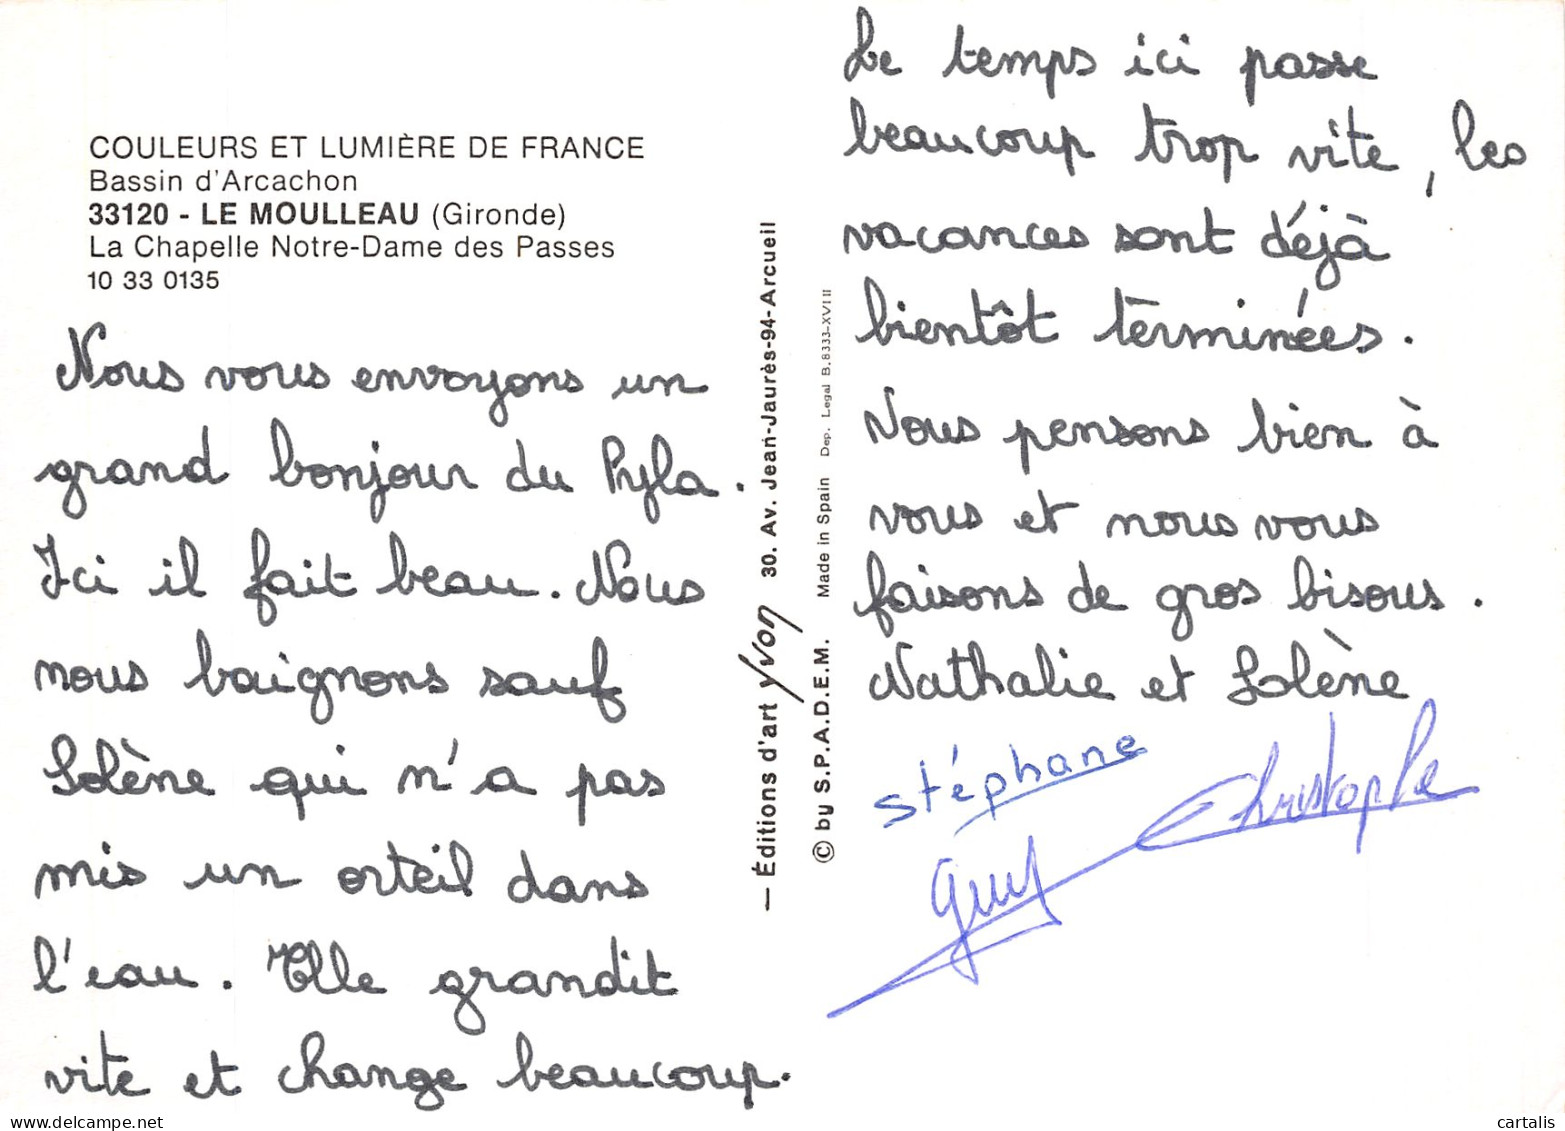 COULEURS ET LUMIÈRE DE FRANCE
Bassin d'Arcachon
33120 - LE MOULLEAU (Gironde)
La Chapelle Notre-Dame des Passes
10 33 0135
Nous vous envoyons un
grand bonjour du Pyla.
Ici il fait beau. Nous
nous baignons sauf
Solène qui n'a pas
mis un orteil dans
l'eau. Elle grandit
vite et change beaucoup.
— Éditions d'art Yvon 30. Av. Jean-Jaurès-94-Arcueil
© by S.P.A.D.E.M. Made in Spain Dep. Legal B. 8333-XVIII
Le temps ici passe
beaucoup trop vite, les
vacances sont déjà
bientôt terminées.
Nous pensons bien à
vous et nous vous
faisons de gros bisous.
Nathalie et Solène
Stéphane
Christophe
guy
cartalis
www.delcampe.net